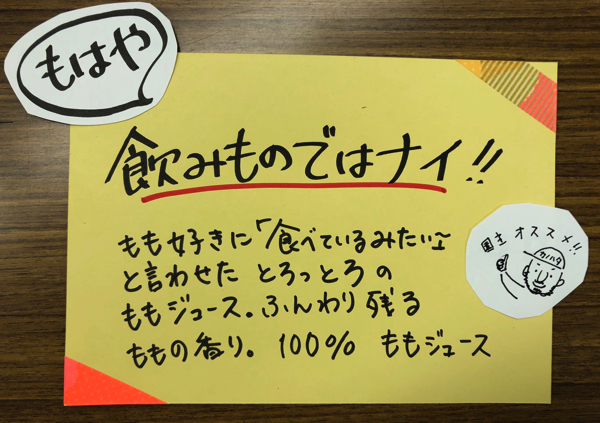 もはや
飲みものではナイ!!
もも好きに「食べているみたい」
と言わせた とろっとろの
ももジュース。ふんわり残る
ももの香り。 100% ももジュース
園主オススメ!!
カハタ